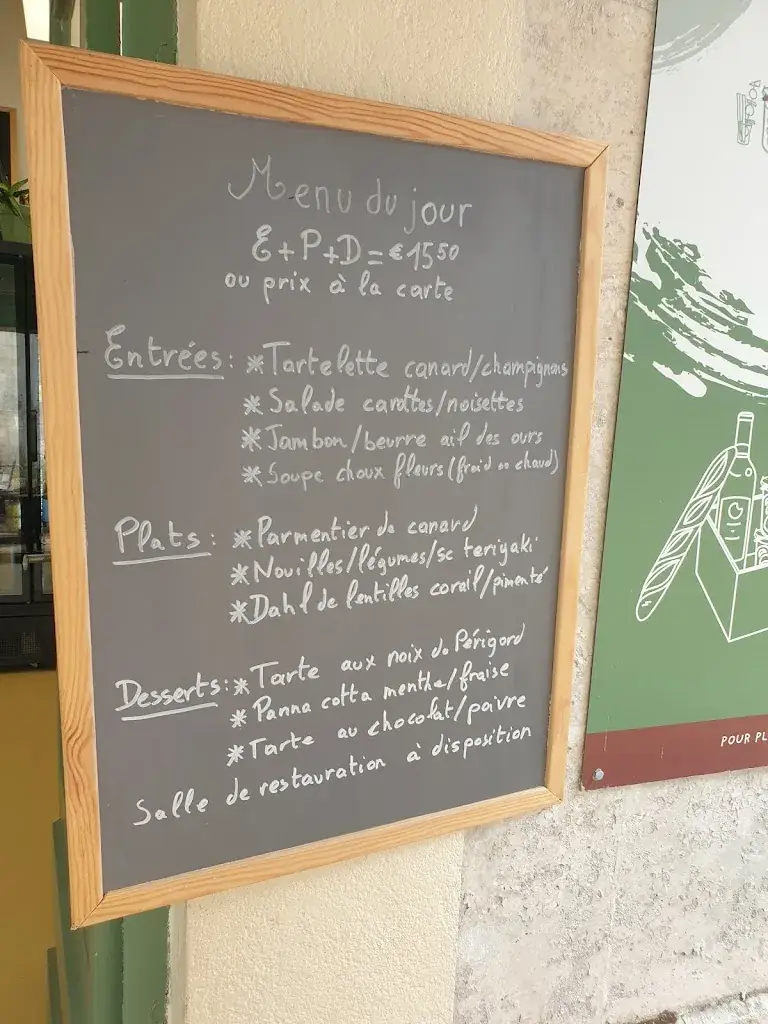 Menu du jour
E+P+D=€1550
ou prix à la carte
Entrées: * Tartelette canard/champignons
* Salade carottes/noisettes
* Jambon/beurre ail des ours
* Soupe choux fleurs (froid ou chaud)
Plats: * Parmentier de canard
* Nouilles/légumes/sc teriyaki
* Dahl de lentilles corail/pimenté
Desserts: * Tarte aux noix du Périgord
* Panna cotta menthe/fraise
* Tarte au chocolat/poivre
Salle de restauration à disposition
POUR PL